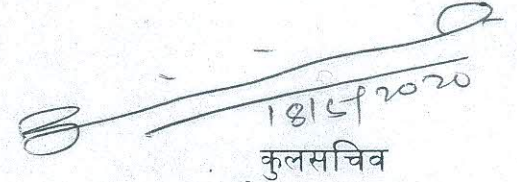 18/5/2020
कुलसचिव